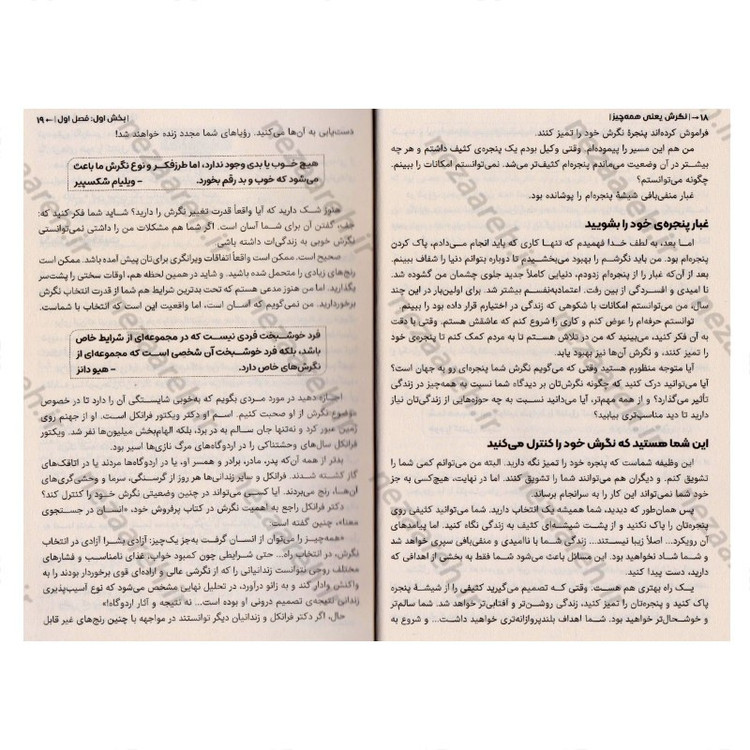 ۱۸ →|نگرش یعنی همه‌چیز|
فراموش کرده‌اند پنجرهٔ نگرش خود را تمیز کنند.
من هم این مسیر را پیموده‌ام. وقتی وکیل بودم یک پنجره‌ی کثیف داشتم و هر چه
بیشتر در آن وضعیت می‌ماندم پنجره‌ام کثیف‌تر می‌شد. نمی‌توانستم امکانات را ببینم.
چگونه می‌توانستم؟
غبار منفی‌بافی شیشهٔ پنجره‌ام را پوشانده بود.
غبار پنجره‌ی خود را بشویید
اما بعد، به لطف خدا فهمیدم که تنها کاری که باید انجام می‌دادم، پاک کردن
پنجره‌ام بود. من باید نگرشم را بهبود می‌بخشیدم تا دوباره بتوانم دنیا را شفاف ببینم.
بعد از آن‌که غبار را از پنجره‌ام زدودم، دنیایی کاملاً جدید جلوی چشمان من گشوده شد.
نا امیدی و افسردگی از بین رفت. اعتمادبه‌نفسم بیشتر شد. برای اولین‌بار در این چند
سال، من می‌توانستم امکانات با شکوهی که زندگی در اختیارم قرار داده بود را ببینم.
توانستم حرفه‌ام را عوض کنم و کاری را شروع کنم که عاشقش هستم. وقتی با دقت
به آن فکر کنید، می‌بینید که من در تلاش هستم تا به مردم کمک کنم تا پنجره‌ی خود
را تمیز کنند، و نگرش آن‌ها نیز بهبود یابد.
آیا متوجه منظورم هستید وقتی که می‌گویم نگرش شما پنجره‌ای رو به جهان است؟
آیا می‌توانید درک کنید که چگونه نگرش‌تان بر دیدگاه شما نسبت به همه‌چیز در زندگی
تأثیر می‌گذارد؟ و از همه مهم‌تر، آیا می‌دانید نسبت به چه حوزه‌هایی از زندگی‌تان نیاز
دارید تا دید مناسب‌تری بیابید؟
این شما هستید که نگرش خود را کنترل می‌کنید
این وظیفه شماست که پنجره خود را تمیز نگه دارید. البته من می‌توانم کمی شما را
تشویق کنم. و دیگران هم می‌توانند شما را تشویق کنند. اما در نهایت، هیچ‌کسی به جز
خود شما نمی‌تواند این کار را به سرانجام برساند.
پس همان‌طور که دیدید، شما همیشه یک انتخاب دارید. شما می‌توانید کثیفی روی
پنجره‌تان را پاک نکنید و از پشت شیشه‌ای کثیف به زندگی نگاه کنید. اما پیامدهای
آن رویکرد... اصلاً زیبا نیستند... زندگی شما با ناامیدی و منفی‌بافی سپری خواهد شد
و شما شاد نخواهید بود. این مسائل باعث می‌شود شما فقط به بخشی از اهدافی که
دارید، دست پیدا کنید.
یک راه بهتری هم هست. وقتی که تصمیم می‌گیرید کثیفی را از شیشهٔ پنجره
پاک کنید و پنجره‌تان را تمیز کنید، زندگی روشن‌تر و آفتابی‌تر خواهد شد. شما سالم‌تر
و خوشحال‌تر خواهید بود. شما اهداف بلندپروازانه‌تری خواهید داشت... و شروع به
|بخش اول: فصل اول| ← ۱۹
دست‌یابی به آن‌ها می‌کنید. رؤیاهای شما مجدد زنده خواهند شد!
هیچ خوب یا بدی وجود ندارد، اما طرزفکر و نوع نگرش ما باعث
می‌شود که خوب و بد رقم بخورد. – ویلیام شکسپیر
هنوز شک دارید که آیا واقعاً قدرت تغییر نگرش را دارید؟ شاید شما فکر کنید که:
«جف، گفتن آن برای شما آسان است. اگر شما هم مشکلات من را داشتی نمی‌توانستی
نگرش خوبی به زندگی‌ات داشته باشی.
صحیح است. ممکن است واقعاً اتفاقات ویرانگری برای‌تان پیش آمده باشد. ممکن است
رنج‌های زیادی را متحمل شده باشید. و شاید در همین لحظه هم، اوقات سختی را پشت‌سر
بگذارید. اما من هنوز مدعی هستم که تحت بدترین شرایط هم شما از قدرت انتخاب نگرش
برخوردارید. من نمی‌گویم که آسان است، اما واقعیت این است که انتخاب با شماست.
فرد خوشبخت فردی نیست که در مجموعه‌ای از شرایط خاص
باشد، بلکه فرد خوشبخت آن شخصی است که مجموعه‌ای از
نگرش‌های خاص دارد. – هیو دانز
اجازه دهید در مورد مردی بگویم که به‌خوبی شایستگی آن را دارد تا در خصوص
موضوع نگرش از او صحبت کنیم. اسم او دکتر ویکتور فرانکل است. او از جهنم روی
زمین عبور کرد و نه‌تنها جان سالم به در برد، بلکه الهام‌بخش میلیون‌ها نفر شد. ویکتور
فرانکل سال‌های وحشتناکی را در اردوگاه‌های مرگ نازی‌ها اسیر بود.
بدتر از همه آن‌که پدر، مادر، برادر و همسر او، یا در اردوگاه‌ها مردند یا در اتاقک‌های
گاز کشته شدند. فرانکل و سایر زندانی‌ها هر روز از گرسنگی، سرما و وحشی‌گری‌های
آن‌ها، رنج می‌بردند. آیا کسی می‌تواند در چنین وضعیتی نگرش خود را کنترل کند؟
دکتر فرانکل راجع به اهمیت نگرش در کتاب پرفروش خود، «انسان در جستجوی
معنا»، چنین گفته است:
«همه‌چیز را می‌توان از انسان گرفت به‌جز یک‌چیز: آزادی بشر؛ آزادی در انتخاب
نگرش، در انتخاب راه... حتی شرایطی چون کمبود خواب، غذای نامناسب و فشارهای
مختلف روحی نتوانست زندانیانی را که از نگرشی عالی و اراده‌ای قوی برخوردار بودند را به
واکنش وادار کند و به زانو درآورد، در تحلیل نهایی مشخص می‌شود که نوع آسیب‌پذیری
زندانی نتیجه‌ی تصمیم درونی او بوده است... نه نتیجه و آثار اردوگاه!»
حال، اگر دکتر فرانکل و زندانیان دیگر توانستند در مواجهه با چنین رنج‌های غیر قابل
nezaareh.ir